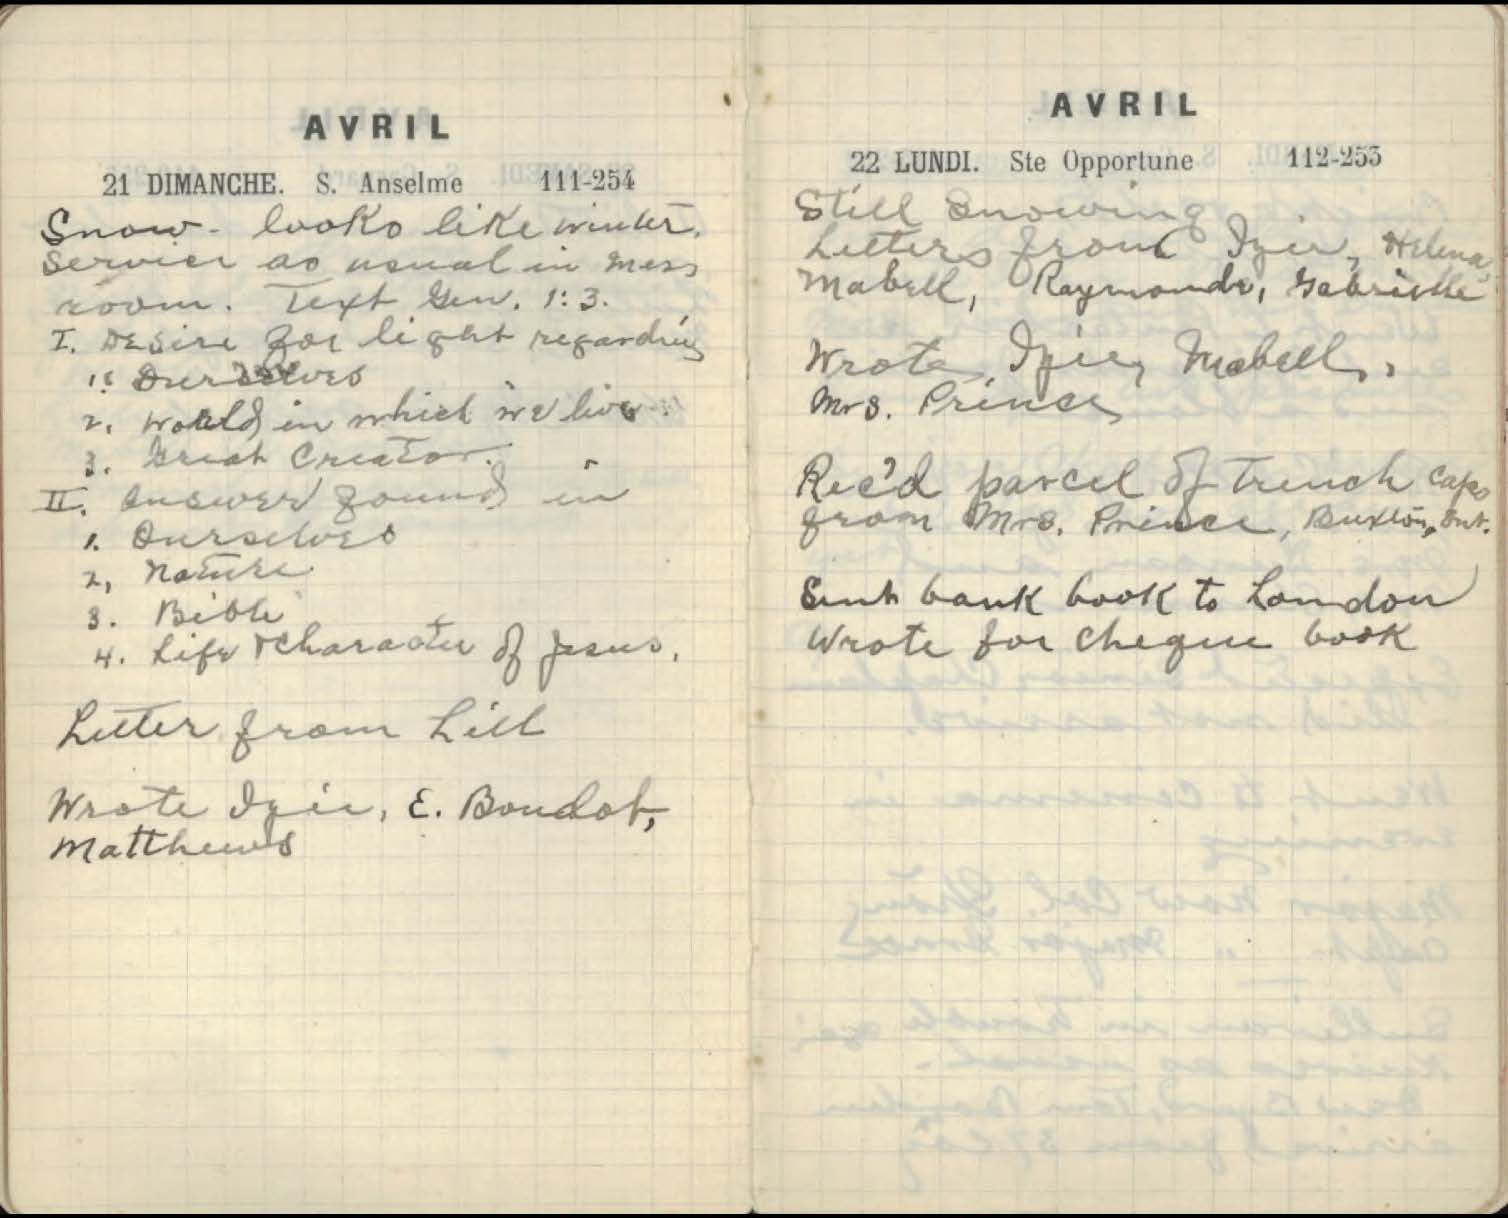 AVRIL
21 DIMANCHE. S. Anselme 111-254
Snow - looks like winter.
Service as usual in mess
room. Text Gen. 1:3.
I. Desire for light regarding
1. Ourselves
2. World in which we live.
3. Great Creator.
II. Answer found in
1. Ourselves
2, Nature
3. Bible
4. Life & Character of Jesus.
Letter from Lill
Wrote Izie, E. Boudot,
Matthews
AVRIL
22 LUNDI. Ste Opportune 112-253
Still Snowing
Letters from Izie, Helena,
Mabell, Raymonde, Gabrielle
Wrote Izie, Mabell,
Mrs. Prince
Rec'd parcel of trench caps
from Mrs. Prince, Buxton, Ont.
Sent bank book to London
Wrote for cheque book